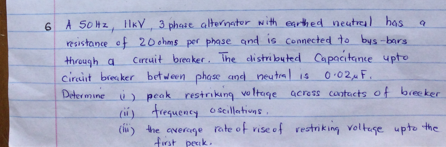 6 A 50Hz, 11kV, 3 phase alternator with earthed neutral has a
resistance of 20ohms per phase and is connected to bus-bars
through a Circuit breaker. The distributed Capacitance upto
Circuit breaker between phase and neutral is 0.02μF.
Determine (i) peak restriking voltage across contacts of breaker
(ii) frequency oscillations.
(iii) the average rate of rise of restriking voltage upto the
first peak.